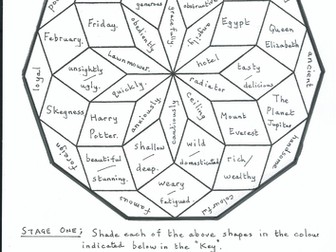 generous
gracefully
obstructive
February.
Friday.
obediently
angrily
Egypt
Queen
Elizabeth
loyal
unsightly
/ugly.
Lawnmower.
hotel
tasty
delicious
ancient
quickly.
radiator
Skegness
Harry
Potter.
anxiously.
cautiously
Ceiling
Mount
Everest
The
Planet
Jupiter
foreign
beautiful
stunning.
shallow
/deep.
wild
domesticated
rich/
wealthy
handsome
weary
fatigued.
famous
colourful
STAGE ONE; Shade each of the above shapes in the colour
indicated below in the "Key".